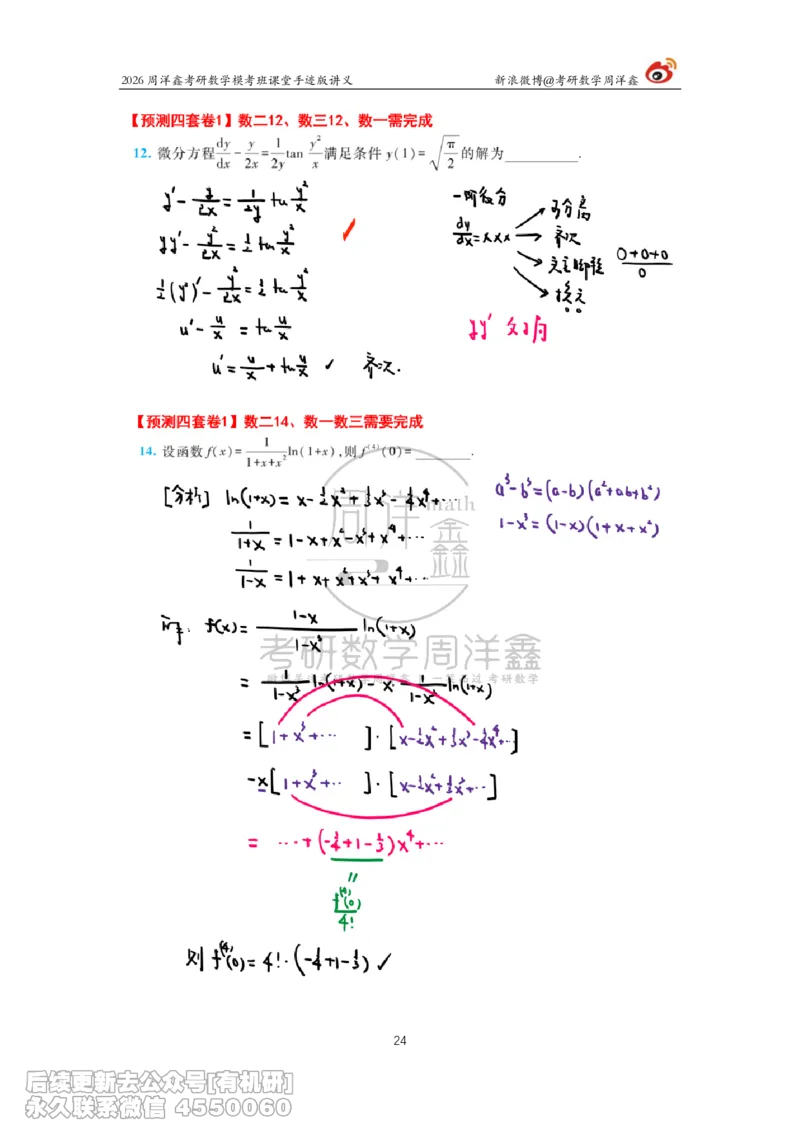 2026 周洋鑫考研数学模考班课堂手迹版讲义 新浪微博@考研数学周洋鑫
【预测四套卷1】数二12、数三12、数一需完成
12. 微分方程 dy/dx - y/2x = 1/2y tan y²/x 满足条件 y(1) = √(π/2) 的解为____.
y' - y/2x = 1/2y tan y²/x
yy' - y²/2x = 1/2 tan y²/x
1/2 (y²)' - y²/2x = 1/2 tan y²/x
u' - u/x = tan u/x
u' = u/x + tan u/x ✓ 齐次.
一阶微分
dy/dx = xxx
可分离
齐次
0+0+0/0
换元
【预测四套卷1】数二14、数一数三需要完成
14. 设函数 f(x) = 1/(1+x+x²) ln(1+x), 则 f⁽⁴⁾(0) = ____.
[分析] ln(1+x) = x - 1/2 x² + 1/3 x³ - 1/4 x⁴ + ...
1/(1+x) = 1 - x + x² - x³ + x⁴ + ...
1/(1-x) = 1 + x + x² + x³ + x⁴ + ...
a³ - b³ = (a-b)(a²+ab+b²)
1 - x³ = (1-x)(1+x+x²)
周洋鑫math
解: f(x) = (1-x)/(1-x³) ln(1+x)
考研数学周洋鑫
= 1/(1-x³) ln(1+x) - x · 1/(1-x³) ln(1+x)
= [1 + x³ + ... ] · [x - 1/2 x² + 1/3 x³ - 1/4 x⁴ + ...]
- x [1 + x³ + ... ] · [x - 1/2 x² + 1/3 x³ + ...]
= ... + (-1/4 + 1 - 1/3) x⁴ + ...
=
f⁽⁴⁾(0)/4!
则 f⁽⁴⁾(0) = 4! · (-1/4 + 1 - 1/3) ✓
24
后续更新去公众号[有机研]
永久联系微信 4550060